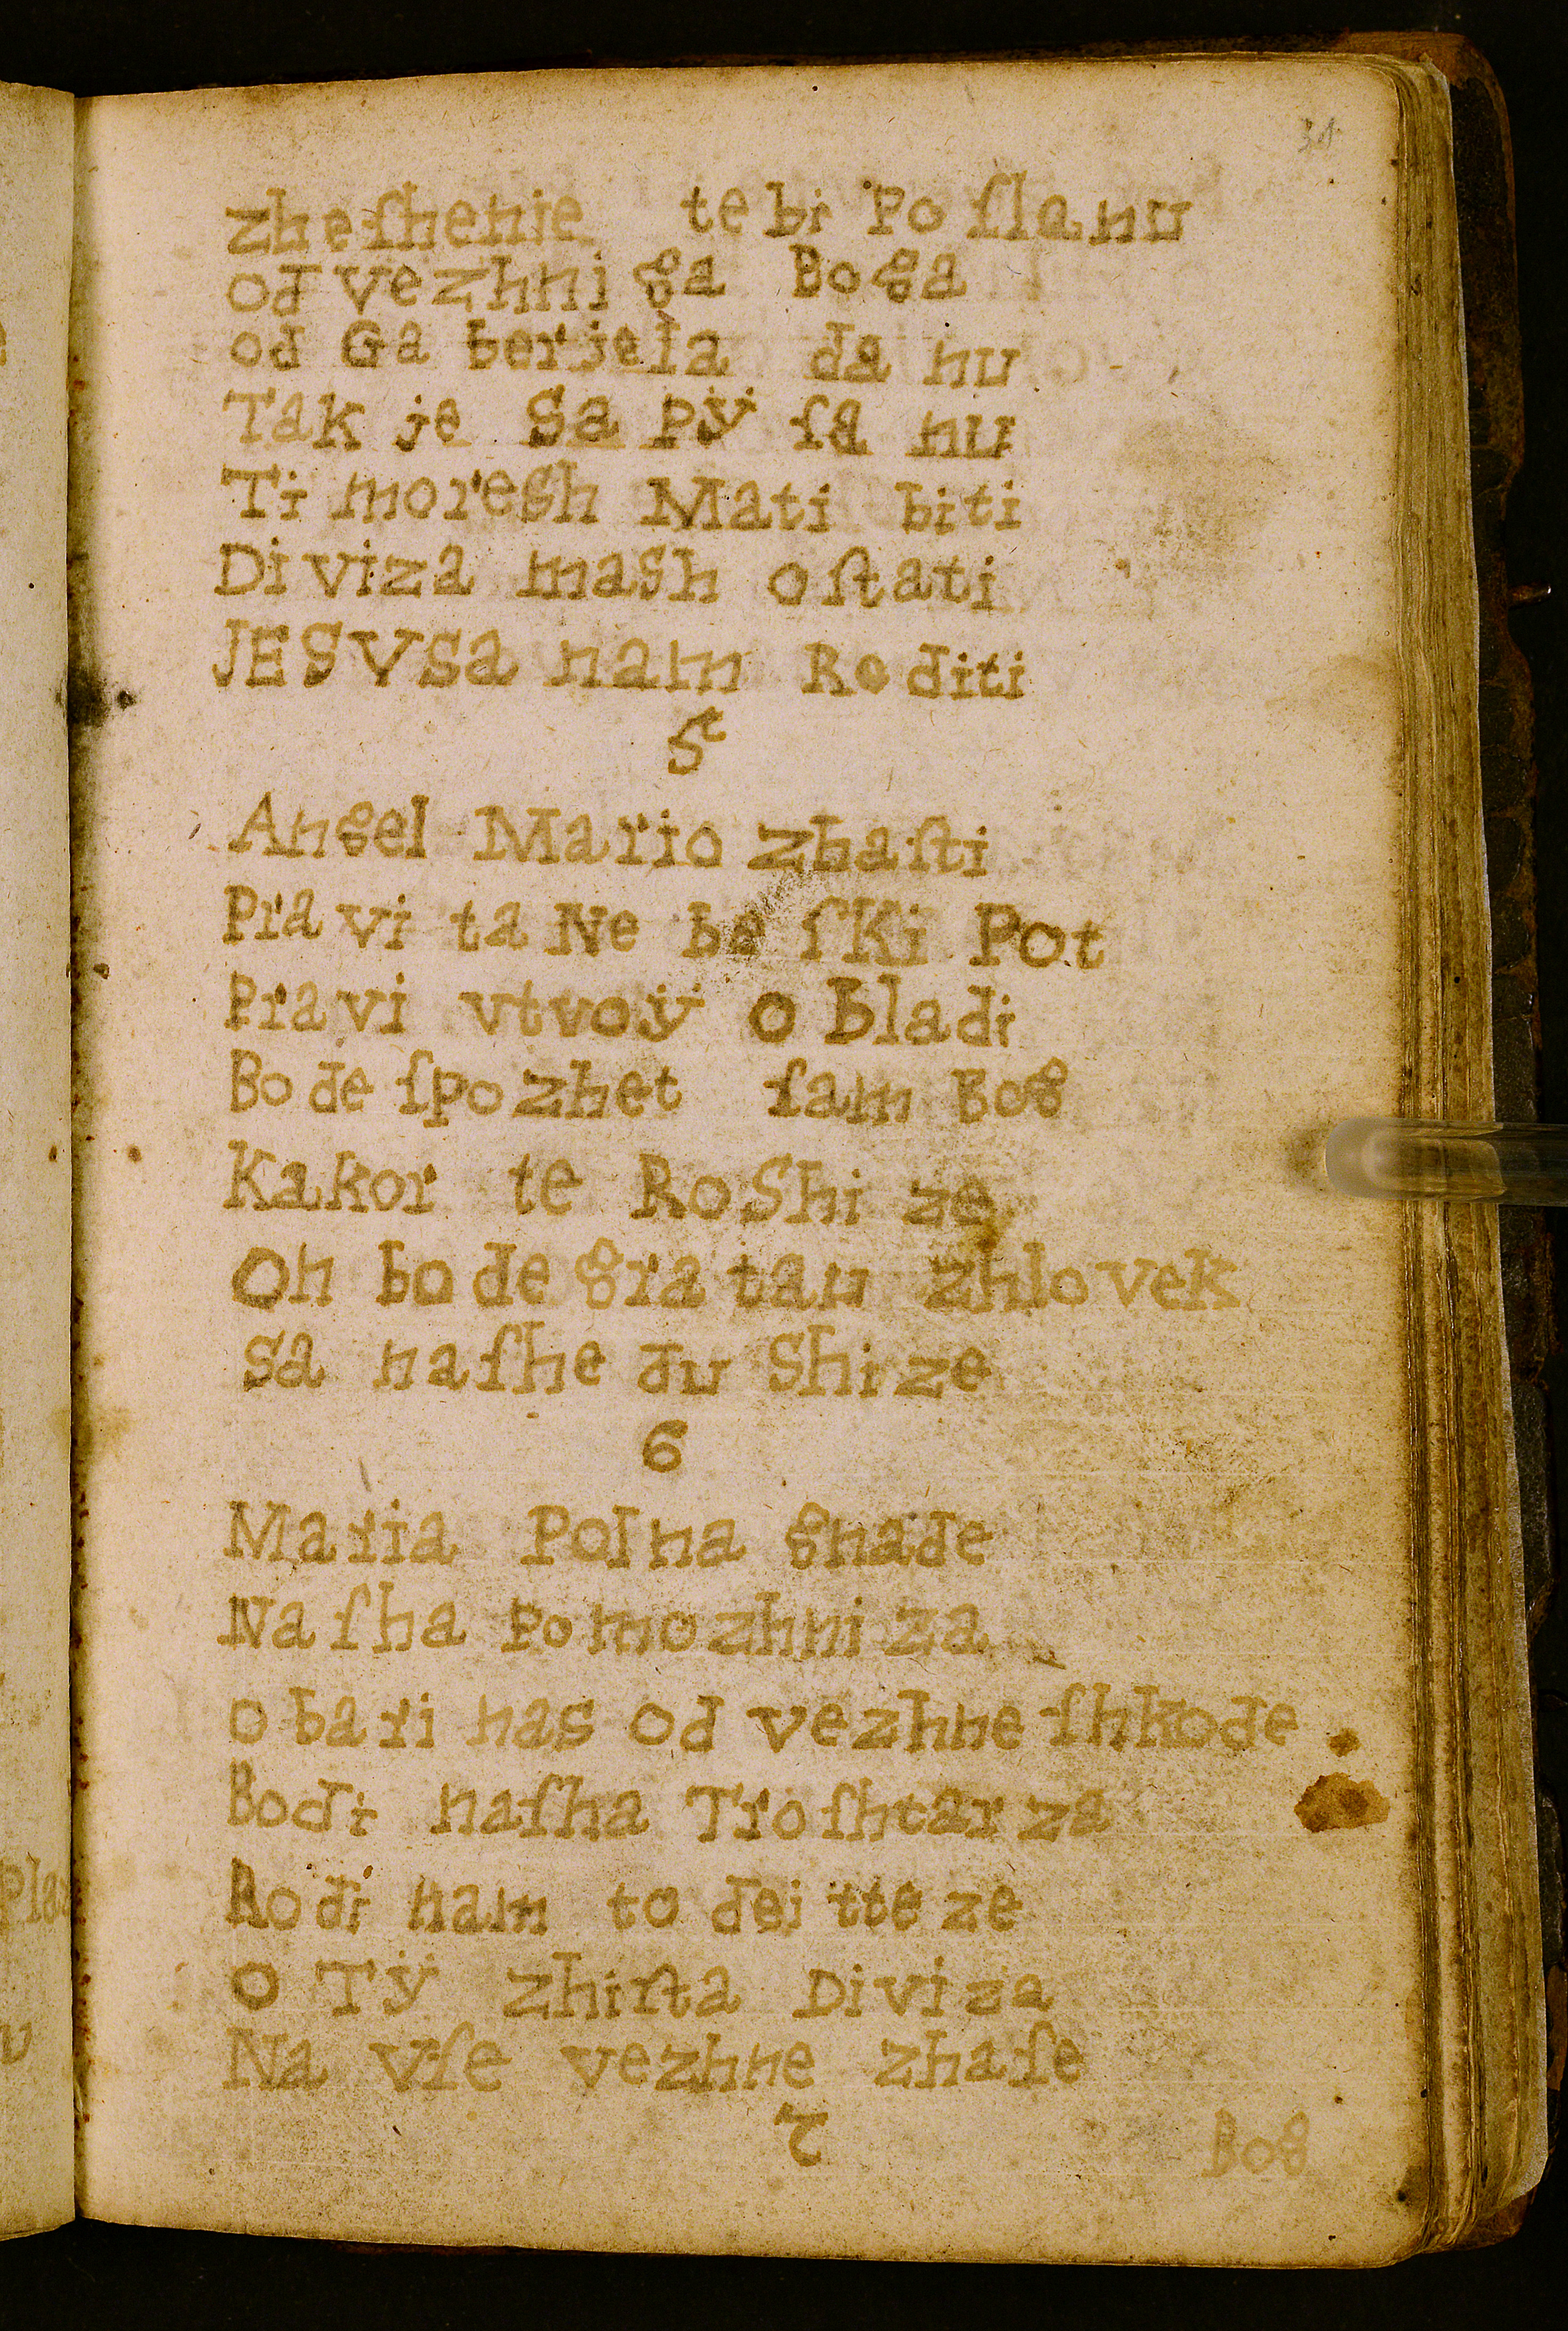 31
zheſhenie tebi Poſlanu
od vezhniga Boga
od Gaberjela danu
Tak je SaPÿſanu
Ti moreſh Mati biti
Diviza mash oſtati
JESVSa nam Roditi
5
Angel Mario zhaſti
Pravi ta NebeſKi Pot
Pravi vtvoÿ obladi
Bode ſpozhet ſam Bog
Kakor te RoShize
On bode gratau zhlovek
Sa naſhe duShize
6
Maria Polna gnade
Naſha Pomozhniza
obari nas od vezhne ſhkode
Bodi naſha Troſhtarza
Rodi nam to deitteze
O Tÿ zhiſta Diviza
Na vſe vezhne zhaſe
7
Bog